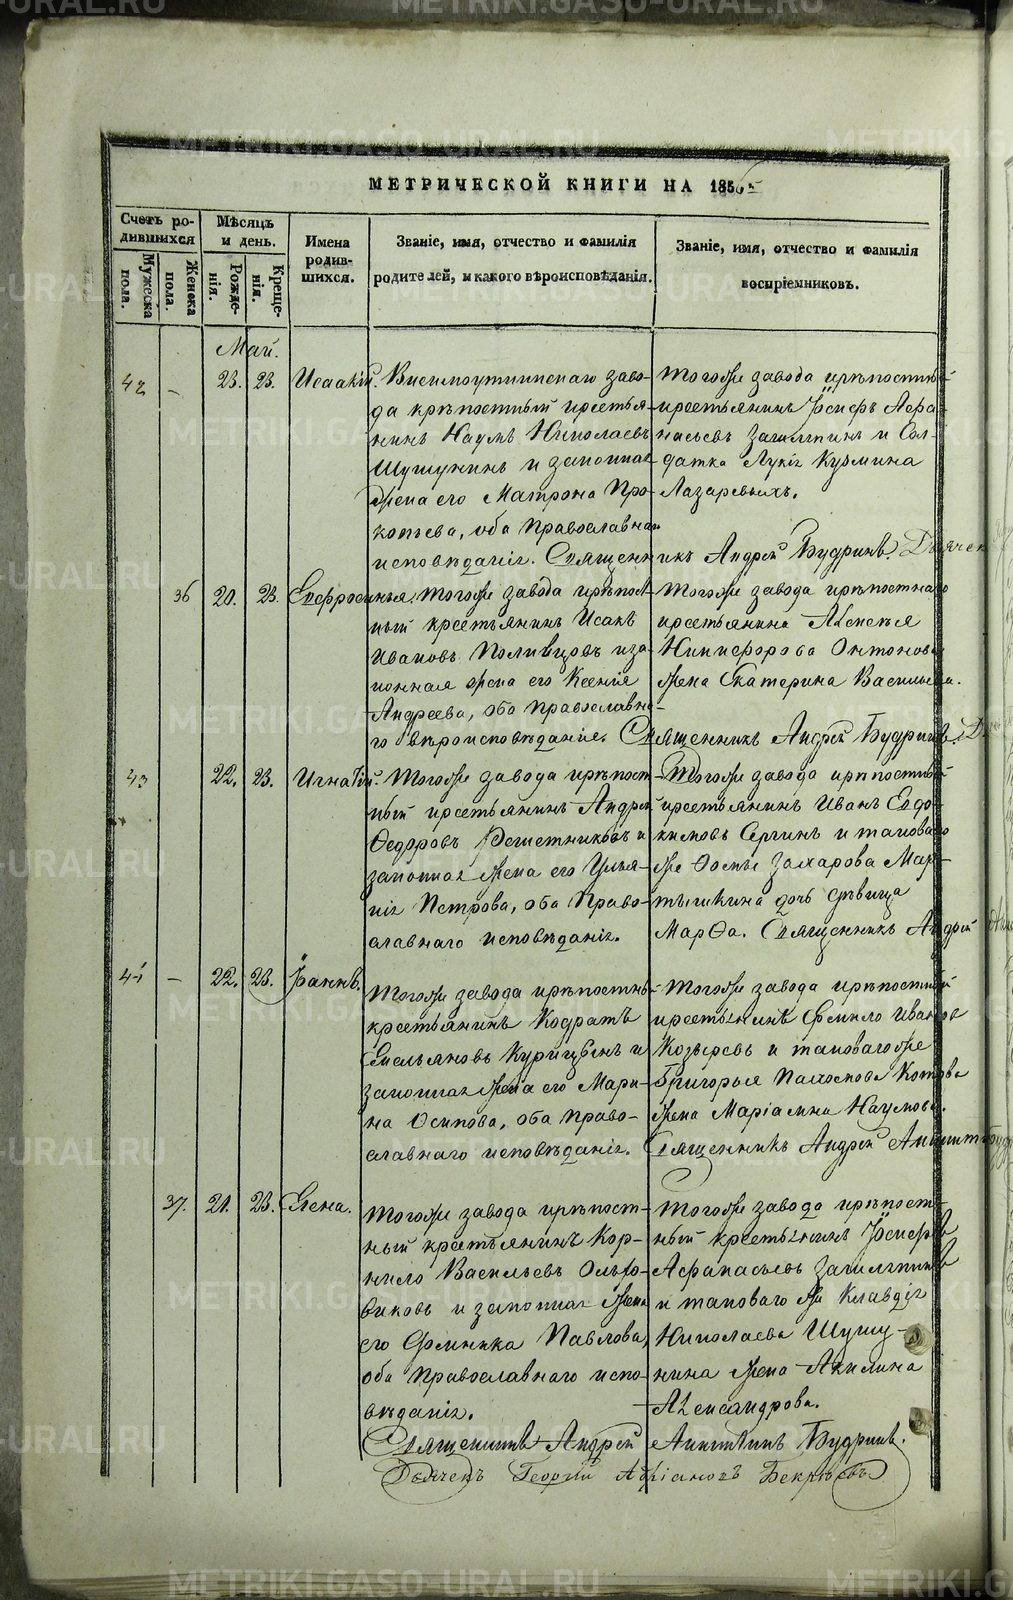 METRIKI.GASO-URAL.RU
МЕТРИЧЕСКОЙ КНИГИ НА 1856
Счетъ ро-
дившихся
Мужеска пола.
Женска пола.
Мѣсяцъ
и день.
Рожде-
нія.
Креще-
нія.
Имена
родив-
шихся.
Званіе, имя, отчество и фамилія
родителей, и какого вѣроисповѣданія.
Званіе, имя, отчество и фамилія
воспріемниковъ.
Май.
42 - 23. 23. Исаакій.
Висимоуткинскаго заво-
да крѣпостный крестья-
нинъ Наумъ Николаевъ
Шушунинъ и законная
жена его Матрона Про-
копьева, оба Православнаго
исповѣданія.
Тогоже завода крѣпостный
крестьянинъ Іосифъ Афа-
насьевъ и Сол-
датка Лукія Кузмина
Лазаревыхъ.
Священникъ Андрей Будринъ. Дьячекъ
36 20. 23. Евфросинья.
Тогоже завода крѣпост-
ный крестьянинъ Исакъ
Ивановъ Поливцовъ и за-
конная жена его Ксенія
Андреева, оба Православна-
го вѣроисповѣданія.
Тогоже завода крѣпостнаго
крестьянина Алексѣя
Никифорова Антонова
жена Екатерина Васильева.
Священникъ Андрей Будринъ.
43 22. 23. Игнатій.
Тогоже завода крѣпост-
ный крестьянинъ Андрей
Федоровъ Решетниковъ и
законная жена его Улья-
нія Петрова, оба Право-
славнаго исповѣданія.
Тогоже завода крѣпостный
крестьянинъ Иванъ Евдо-
кимовъ Сергинъ и таковаго
же Ѳомы Захарова Мар-
тышкина дочь дѣвица
Марѳа. Священникъ Андрей
44 - 22. 23. Іоаннъ.
Тогоже завода крѣпостный
крестьянинъ Кодратъ
Емельяновъ Курицынъ и
законная жена его Мари-
на Осипова, оба Право-
славнаго исповѣданія.
Тогоже завода крѣпостный
крестьянинъ Ермило Ивановъ
Козыревъ и таковагоже
Григорья Пахомова Котова
жена Маріамна Наумова.
Священникъ Андрей
37. 21. 23. Елена.
Тогоже завода крѣпост-
ный крестьянинъ Кор-
нило Васильевъ Ольхо-
виковъ и законная жена
его Фминика Павлова,
оба Православнаго испо-
вѣданія.
Тогоже завода крѣпост-
ный крестьянинъ Іосифъ
Афанасьевъ
и таковаго же Клавдія
Николаева Шушу-
нина жена Акилина
Александрова.
Священникъ Андрей Будринъ.
Дьячекъ Георгій Адріановъ